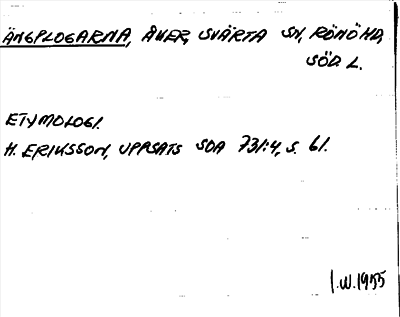 ÄNGPLOGARNA, ÅKER, SVÄRTA SN, RÖNÖ HD,
SÖD L.
ETYMOLOGI.
H. ERIKSSON, UPPSATS SOA 731:4, S. 61.
I.W. 1955